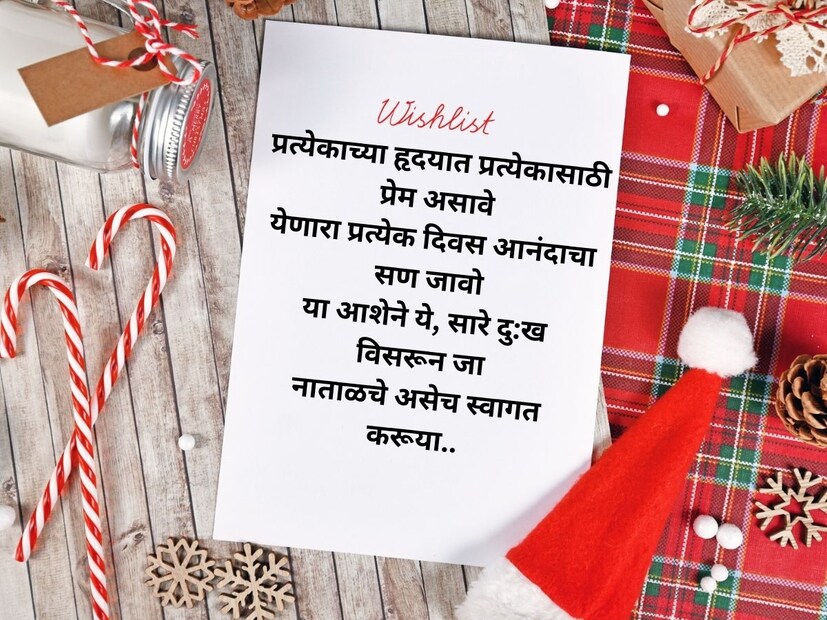 Wishlist
प्रत्येकाच्या हृदयात प्रत्येकासाठी
प्रेम असावे
येणारा प्रत्येक दिवस आनंदाचा
सण जावो
या आशेने ये, सारे दुःख
विसरून जा
नाताळचे असेच स्वागत
करूया..